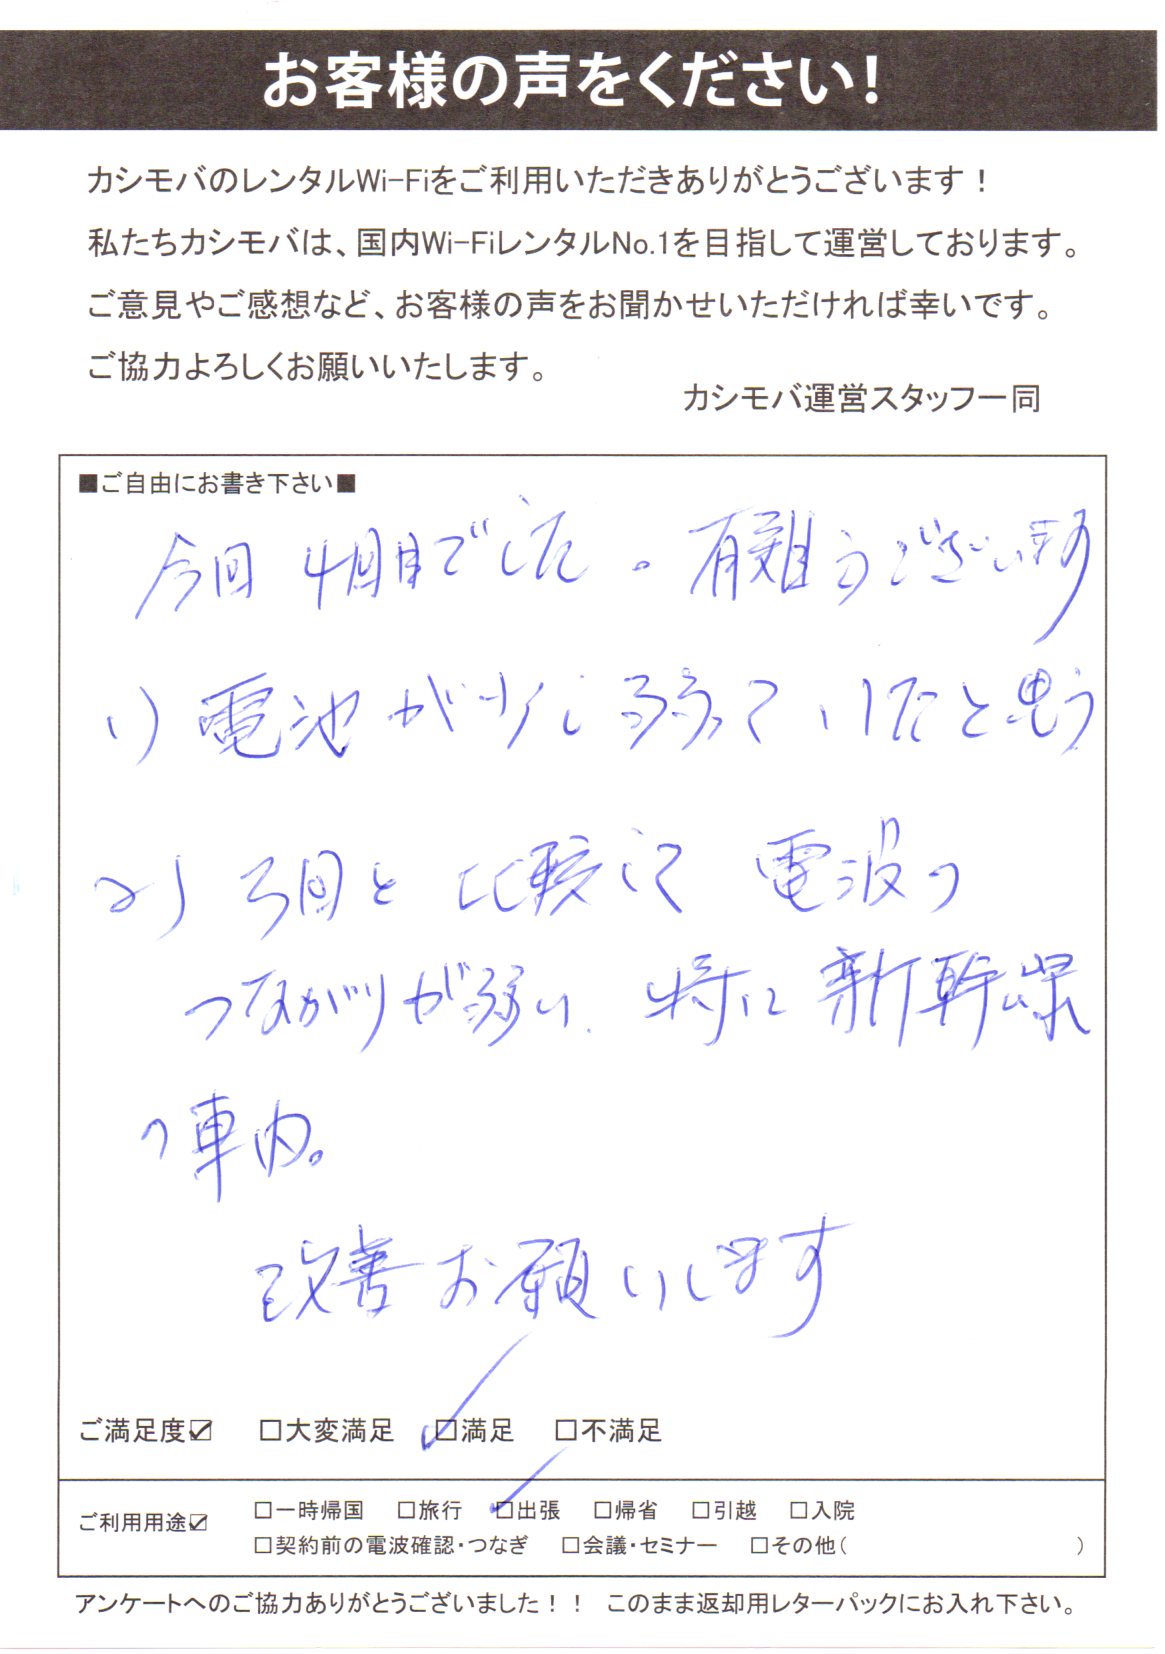 お客様の声をください!
カシモバのレンタルWi-Fiをご利用いただきありがとうございます！
私たちカシモバは、国内Wi-FiレンタルNo.1を目指して運営しております。
ご意見やご感想など、お客様の声をお聞かせいただければ幸いです。
ご協力よろしくお願いいたします。
カシモバ運営スタッフ一同
■ご自由にお書き下さい■
今回4回目でした。有難うございます
1) 電池が少し弱っていたと思う
2) 3回と比較して電波の
つながりが弱い、特に新幹線
の車内。
改善お願いします
ご満足度☑ □大変満足 □満足 □不満足
ご利用用途☑ □一時帰国 □旅行 □出張 □帰省 □引越 □入院
□契約前の電波確認・つなぎ □会議・セミナー □その他( )
アンケートへのご協力ありがとうございました！！ このまま返却用レターパックにお入れ下さい。